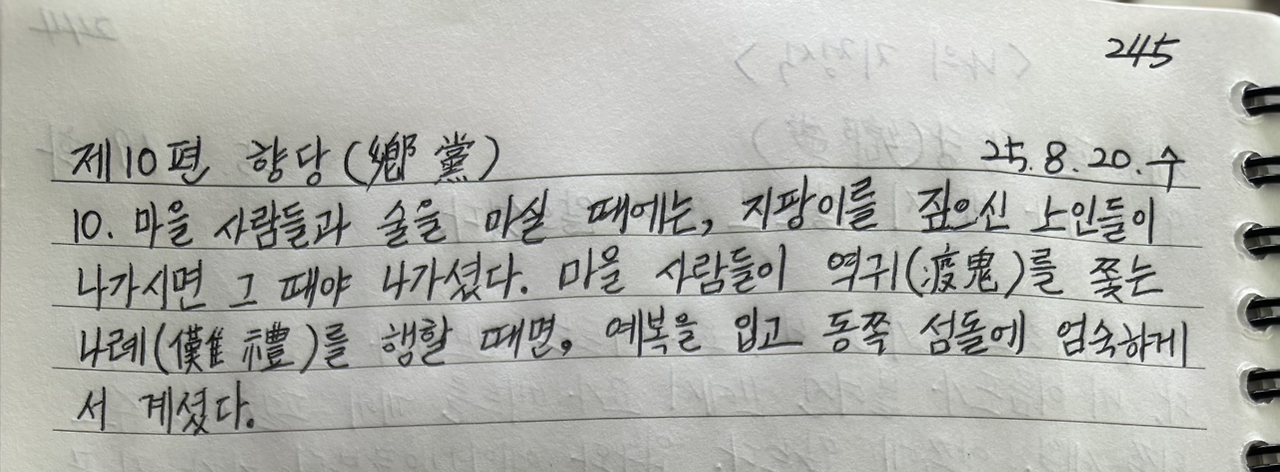 245
제10편 향당(鄕黨) 25.8.20.수
10. 마을 사람들과 술을 마실 때에는, 지팡이를 짚으신 노인들이
나가시면 그 때야 나가셨다. 마을 사람들이 역귀(疫鬼)를 쫓는
나례(儺禮)를 행할 때면, 예복을 입고 동쪽 섬돌에 엄숙하게
서 계셨다.